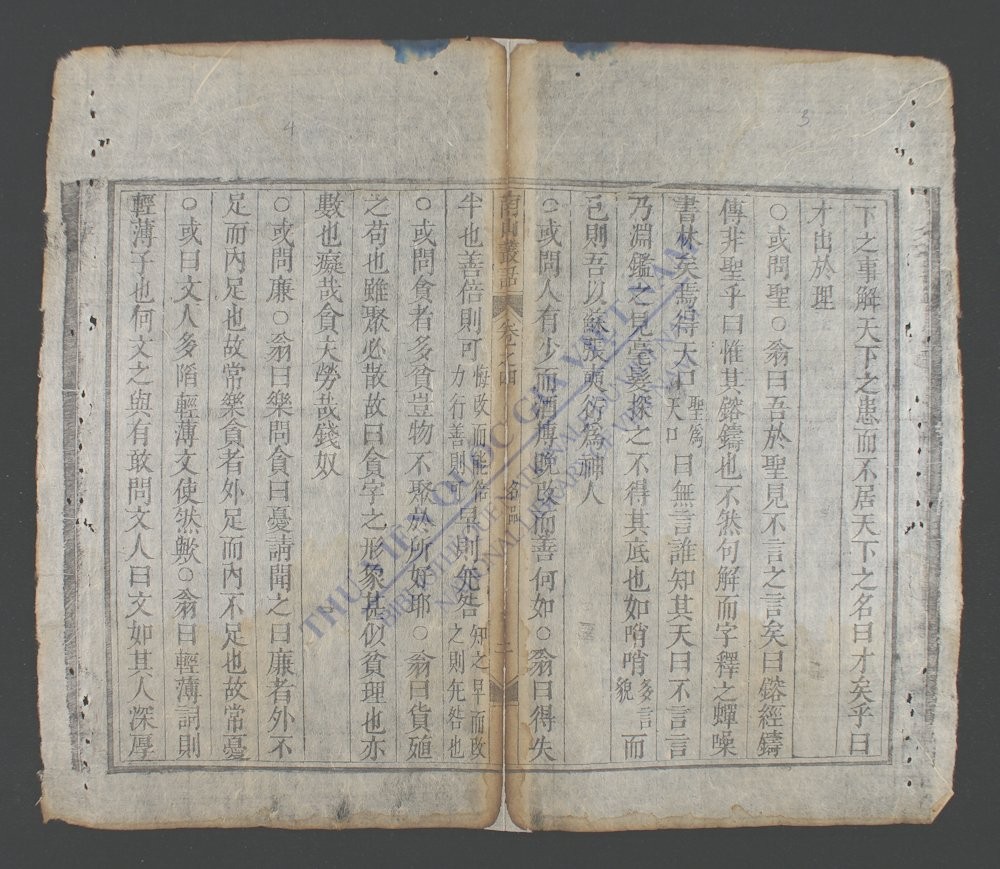 3
下之事解天下之患而不居天下之名曰才矣乎曰
才出於理
○或問聖○翁曰吾於聖見不言之言矣曰鎔經鑄
傳非聖乎曰惟其鎔鑄也不然句解而字釋之蟬噪
書林矣焉得天口聖爲天口曰無言誰知其天曰不言言
乃淵鑑之見毫髮探之不得其底也如哨哨多言貌而
已則吾以蘇張輿衍爲神人
○或問人有少而酒博晚改而善何如○翁曰得失
南山叢話 卷之四 二
4
半也善倍則可悔改而能倍力行善則可早則旡咎知之早而改之則旡咎也
○或問貪者多貧豈物不聚於所好耶○翁曰貨殖
之苟也雖聚必散故曰貪字之形象甚似貧理也亦
數也癡哉貪夫勞哉錢奴
○或問廉○翁曰樂問貪曰憂請聞之曰廉者外不
足而內足也故常樂貪者外足而內不足也故常憂
○或曰文人多陷輕薄文使然歟○翁曰輕薄詞則
輕薄子也何文之與有敢問文人曰文如其人深厚
THƯ VIỆN QUỐC GIA VIỆT NAM
BIBLIOTHEQUE NATIONALE DU VIETNAM
NATIONAL LIBRARY OF VIETNAM